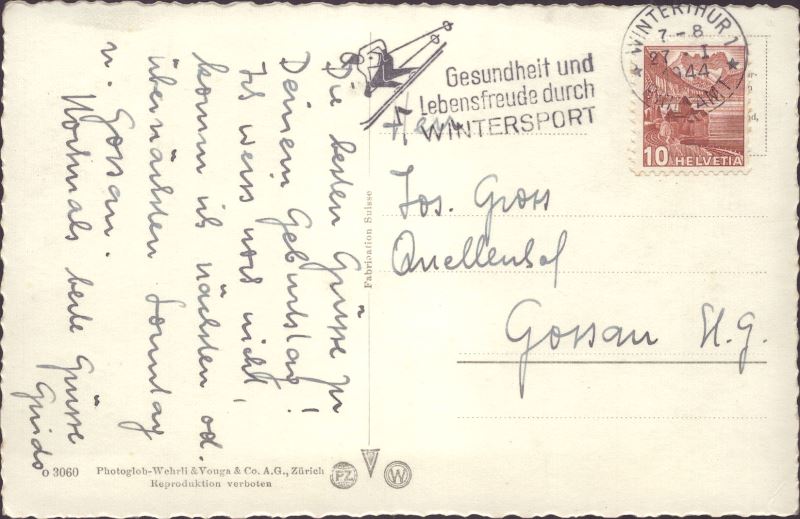 Die besten Grüsse zu
Deinem Geburtstag!
Ich weiss noch nicht,
komm ich nächsten od.
übernächsten Sonntag
n. Gossau.
Nochmals beste Grüsse
Guido
Gesundheit und
Lebensfreude durch
WINTERSPORT
WINTERTHUR 1
7-8
27. I.
1944
10 HELVETIA
Herrn
Jos. Gross
Quellenhof
Gossau St. G.
Fabrication Suisse
o 3060 Photoglob-Wehrli & Vouga & Co. A.G., Zürich
Reproduktion verboten
PZ
W